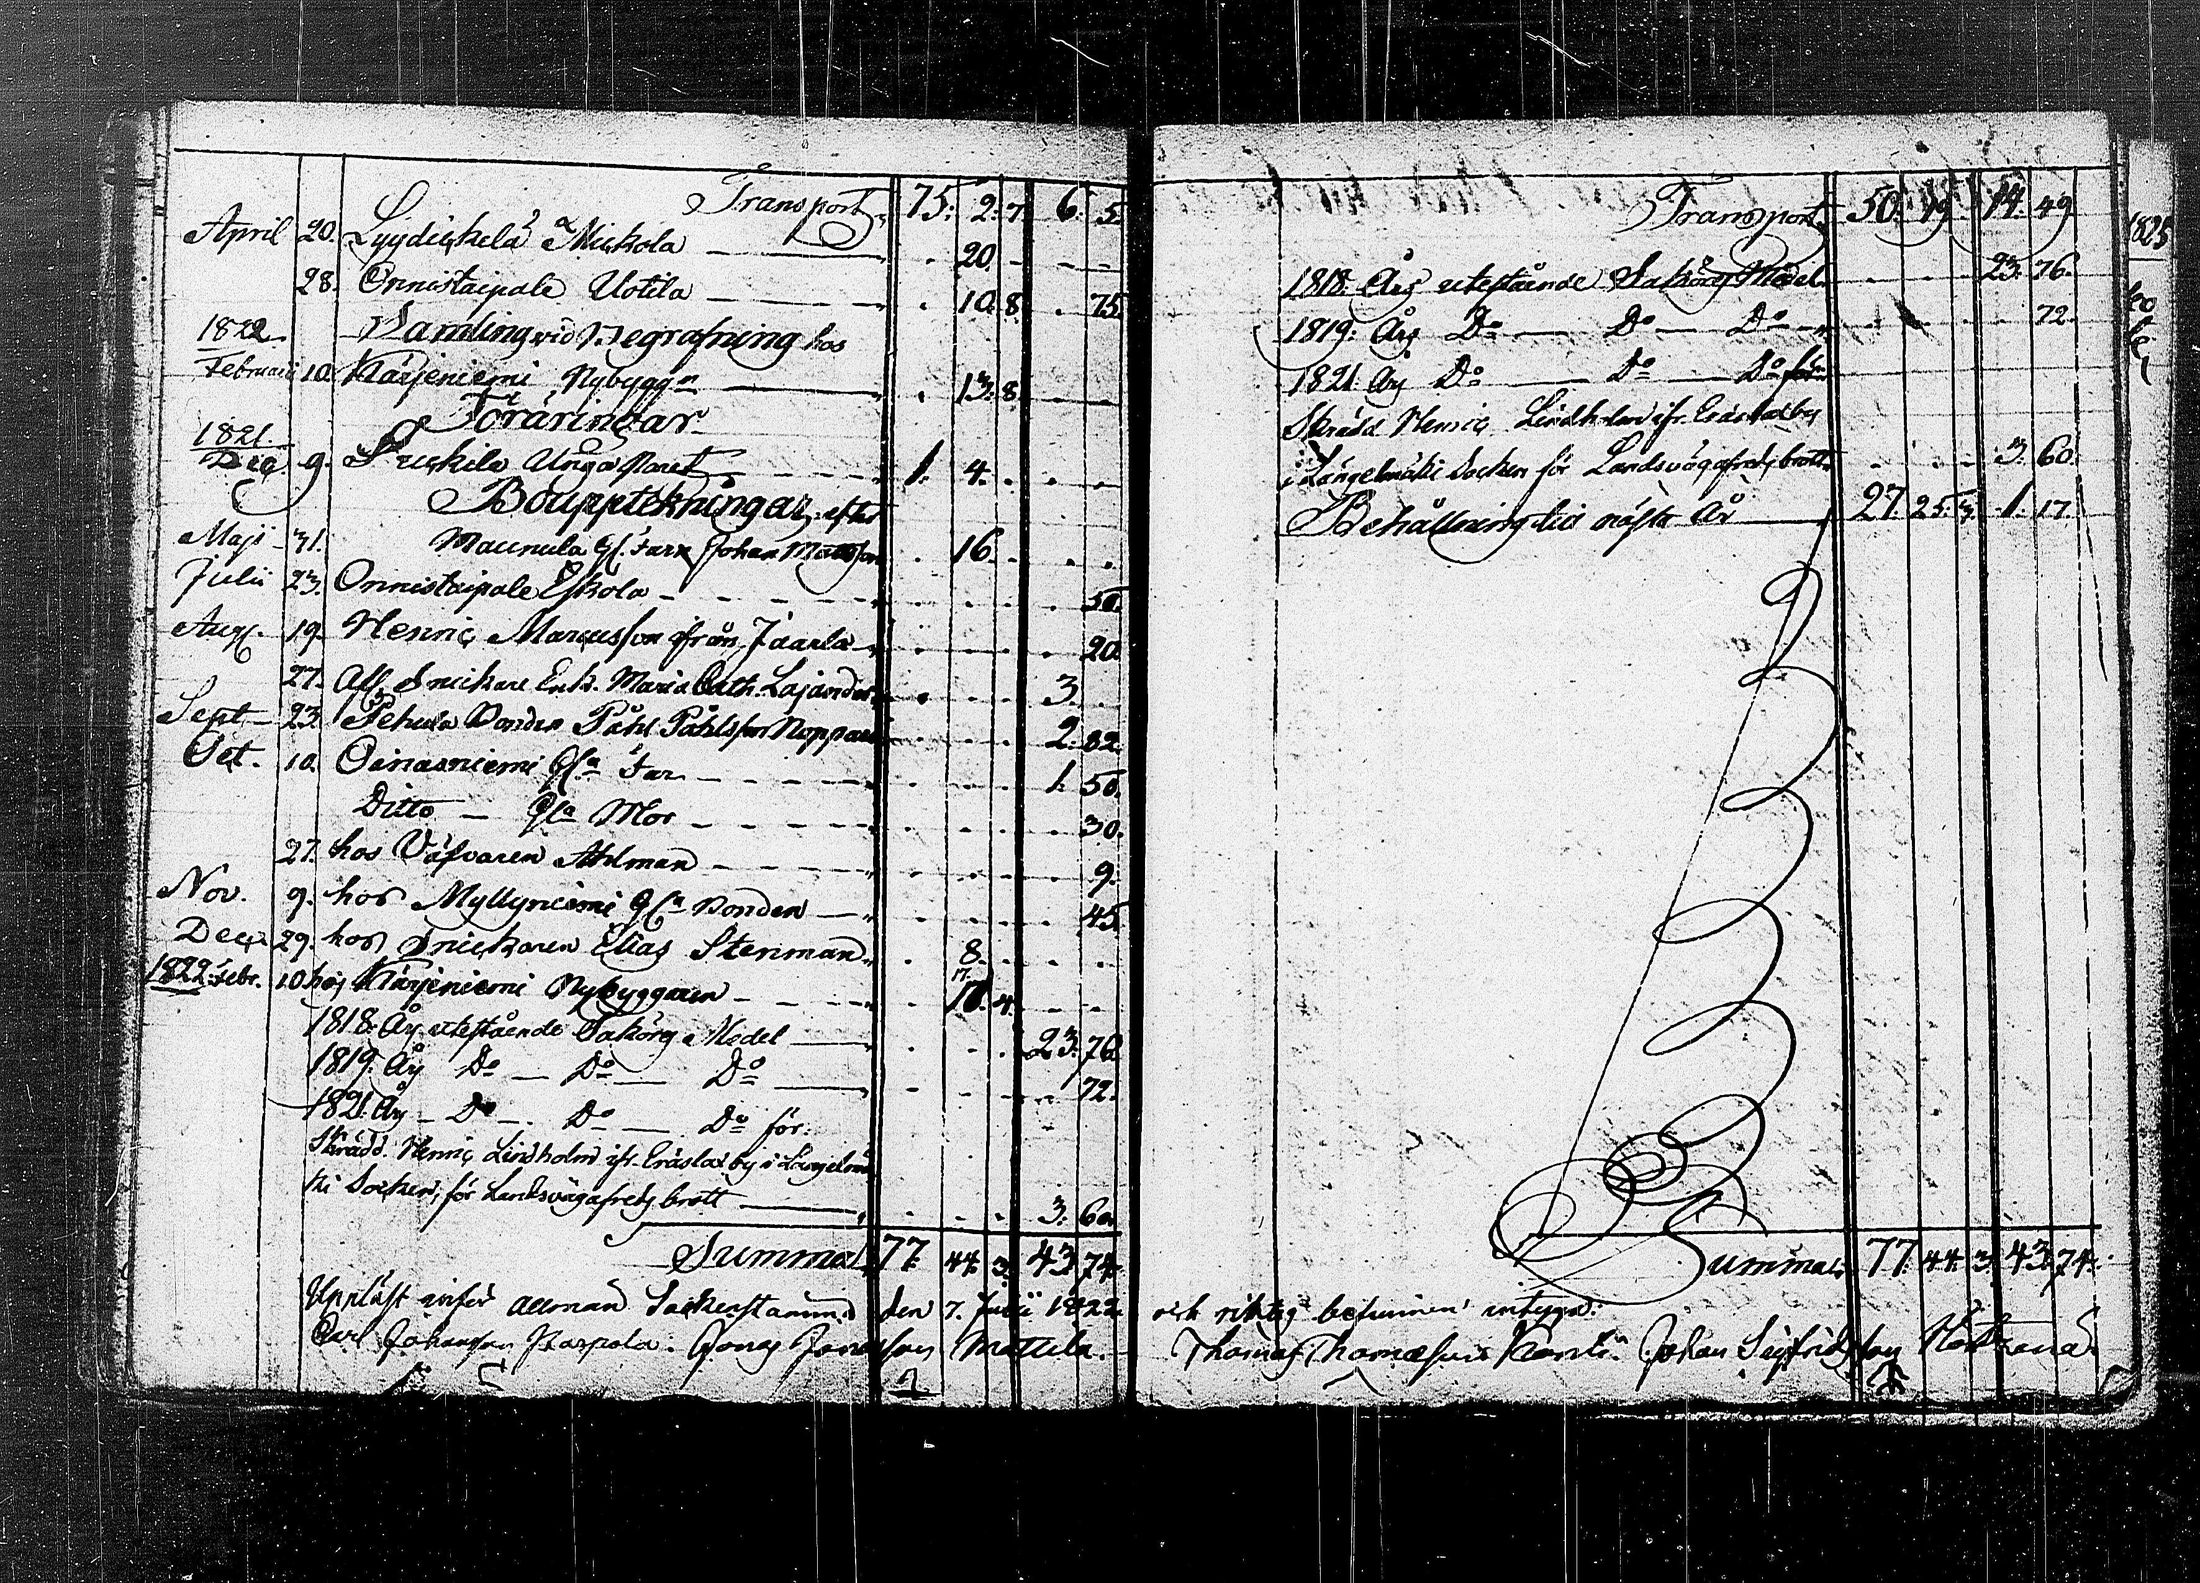 Transport 75. 2. 7. 6. 5.
April 20. Lyydickelä Mickola 20.
28. Onnistaipale Uotila 10. 8. 75.
1822 Samling vid Begrafning hos
Februarii 10. Kärjeniemi Nybygg:n 13. 8.
Föräringar
1821.
Dec. 9. Unga Paret 1. 4.
Bouppteckningar efter
Maji 31. Maunula Gl. Farn Johan Mattsson 16.
Julii 23. Onnistaipale Eskola 50.
Aug. 19. Henric Marcusson ifrån Jaarla 20.
27. Afl. Snickare Enk. Maria Cath. Lajander 3.
Sept. 23. Pehula Bonden Påhl Påhlsson 2. 82.
Oct. 10. Oinasniemi Gl:a Far 1. 50.
Ditto Gl:a Mor 30.
27. hos Väfvaren Ahlman 9.
Nov. 9. hos Myllyniemi Gl:a Bonden 45.
Dec. 29. hos Snickaren Elias Stenman 8.
1822. Febr. 10. hos Kärjeniemi Nybyggaren 17. 4.
1818. Års utestående Sakörs Medel 23. 76.
1819. Års Do Do Do 72.
1821. Års Do Do Do för
Skrädd. Henric Lindholm ifr. Eräslax by i Längelmä
ki Socken, för Landsvägafreds brott 3. 60.
Summa 77. 44. 3. 43. 74.
Uppläst inför allmän Sockenstamma den 7. Julii 1822
Carl Johansson Karpola. Jonas Jonasson Mattila.
Transport 50. 19. 14. 49.
1818. Års utestående Sakörs Medel 23. 76.
1819. Års Do Do Do 72.
1821. Års Do Do Do för
Skrädd Henric Lindholm ifr. Eräslax by
i Längelmäki Socken för Landsvägafreds brott 3. 60.
Behållning till näste År 27. 25. 3. 1. 17.
Summa 77. 44. 3. 43. 74.
och riktig befunnen intyga:
Thomas Thomasson Johan Sigfridsson
1823